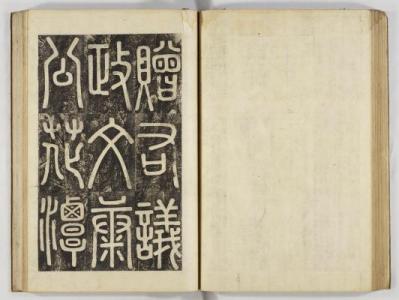 贈右議
政文康
公花潭